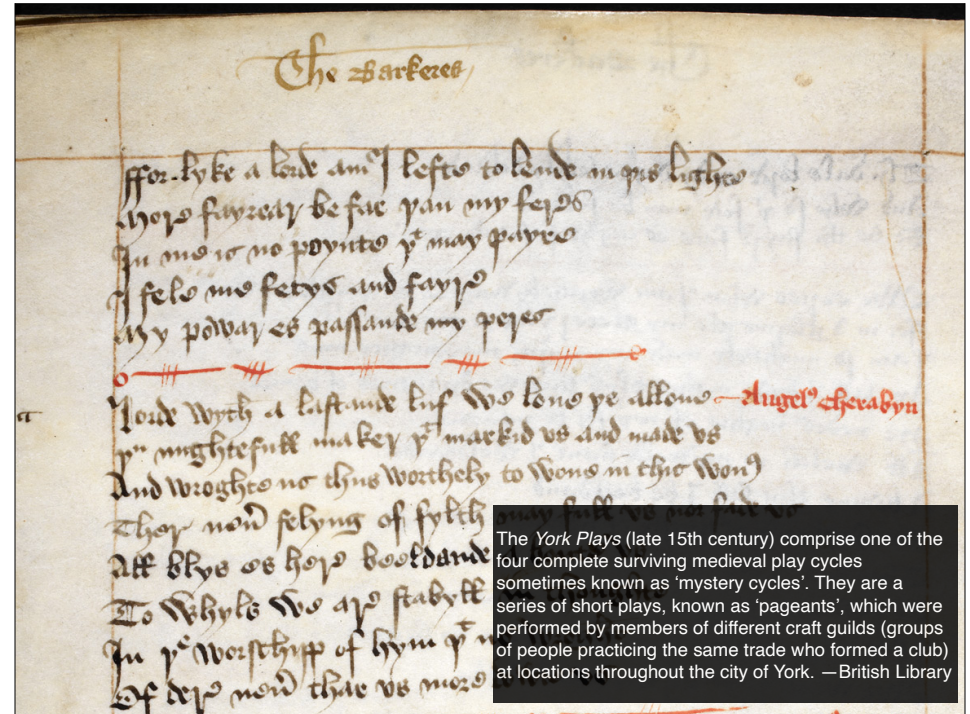 The Barkeres
ffor lyke a lorde am I lefte to lende in þis lighte
More fayrear be far þan my feres
In me is no poynte þt may payre
I fele me fetys and fayre
My powar es passande my peres
lorde wyth a lastande luf we loue þe allone Angels cherabyn
þu mightefull maker þt markid vs and made vs
And wroghte us thus worthely to wone in this wone
Ther neuer felyng of fylth may full vs nor fade vs
All blys es here beeldande
To whyls we are stabyll
In þe worschipp of hym þt
Of dere neuer thar vs more
The York Plays (late 15th century) comprise one of the
four complete surviving medieval play cycles
sometimes known as ‘mystery cycles’. They are a
series of short plays, known as ‘pageants’, which were
performed by members of different craft guilds (groups
of people practicing the same trade who formed a club)
at locations throughout the city of York. —British Library